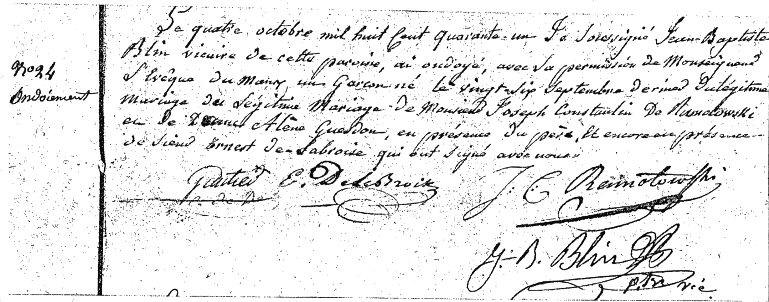 Le quatre octobre mil huit Cent quarante-un Je soussigné Jean-Baptiste
No 24
Ondoiement
Blin vicaire de cette paroisse, ai ondoyé avec la permission de Monseigneur
L'Evêque du Mans un Garçon né le vingt-six Septembre dernier du légitime
mariage du Légitime Mariage de Monsieur Joseph Constantin De Ramolowski
et de Alène Guesdon, en présence du père, Et encore en présence
de Sieur Ernest de Labroise qui ont signé avec nous
E. De LaBroise J. C. Ramolowski
J.-B. Blin
ptre vic